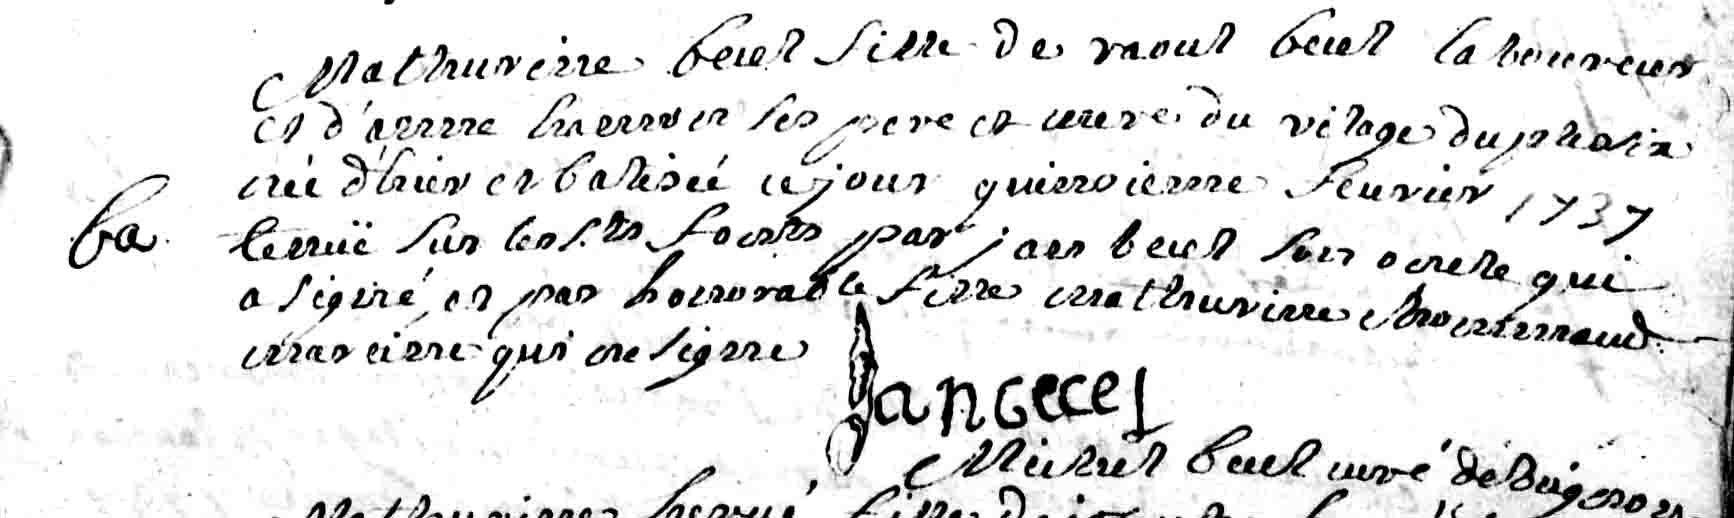 Mathurinne becel fille de raoul becel laboureur
et d'anne ses pere et mere du vilage du plesix
née d'hier et batisée ce jour quinzieme feuvrier 1737
ba
tenuë sur les s.ts fonts par jan becel son oncle qui
a signé, et par honorable fille mathurinne
mareinne qui ne signe
Jan becel
Michel becel curé de
Mathurinne hervué fille de